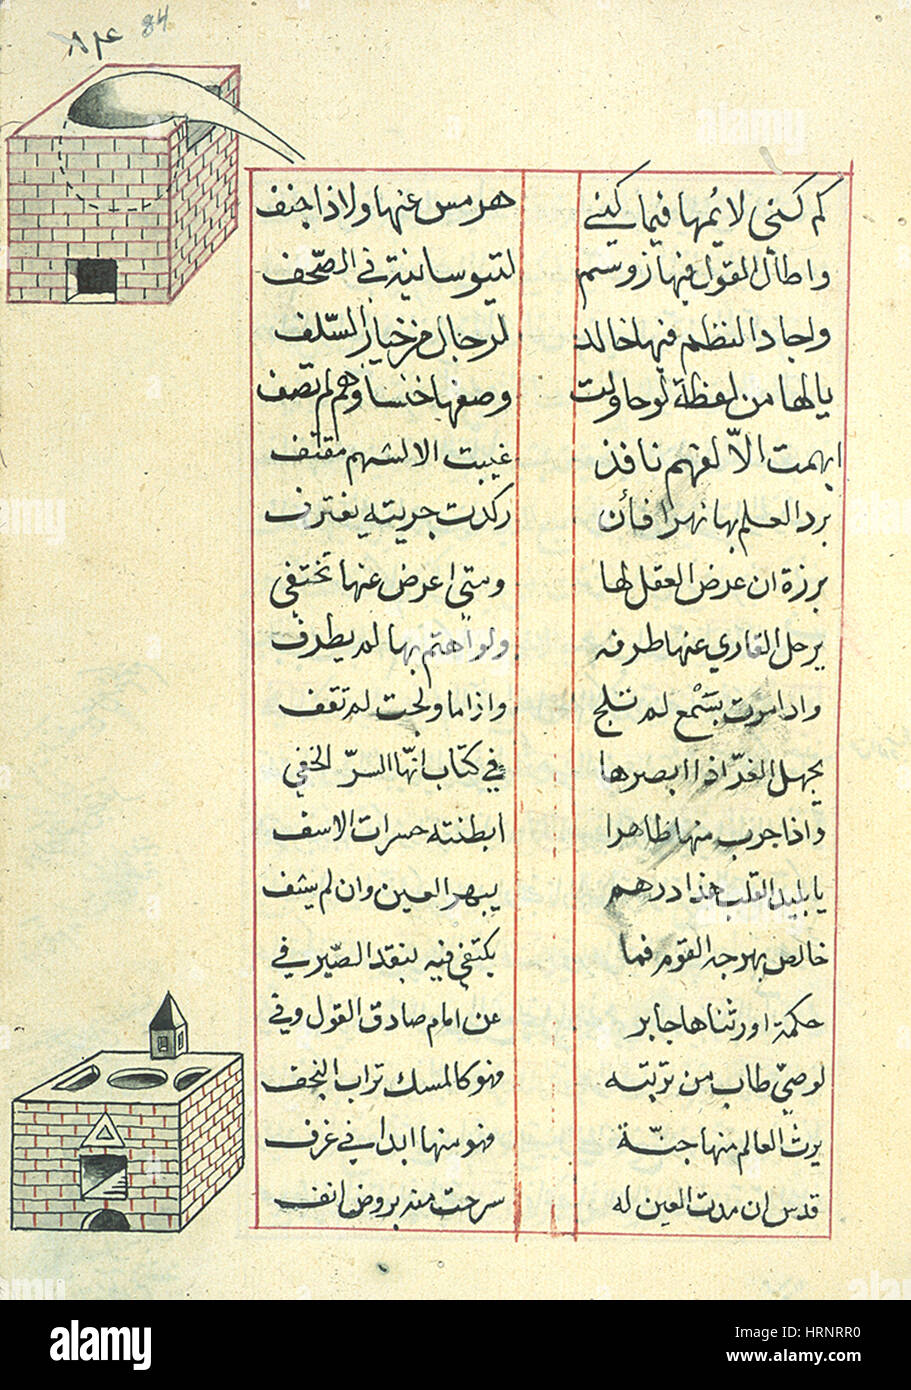 ٨٣٤ 84
كم كنى لايمها فيما كني هرمس عنها ولاذا جنف
واطال القول فيها زوسم لتيوسانية في الصحف
ولجاد النظم فيها خالد لرجال من خيار السلف
يالها من لفظة لو حاولت وصفها خنساوهم لم تصف
ابهمت الا لفهم نافذ غيبت الا لشهم مقتف
برد العلم بها نهرا فأن ركدت جريته يغترف
برزة ان عرض العقل لها ومتى اعرض عنها تختفي
يرحل القاري عنها طرفه ولو اهتم بها لم يطرف
واذا مرت بسمع لم تلج واذا ما ولجت لم تقف
يجهل الغر اذا ابصرها في كتاب انها السر الخفي
واذا جرب منها ظاهرا ابطنته حسرات الاسف
يا بليد القلب هذا درهم يبهر العين وان لم يشف
خالص بهرجه القوم فما يكتفي فيه بنقد الصيرفي
حكمة اورثناها جابر عن امام صادق القول وفي
لوصي طاب من تربته فهو كالمسك تراب النجف
يرث العالم منها جنة فهو منها ابدا في غرف
قدس ان مدت العين له سرحت منه بروض انف
alamy
Image ID: HRNRR0
www.alamy.com